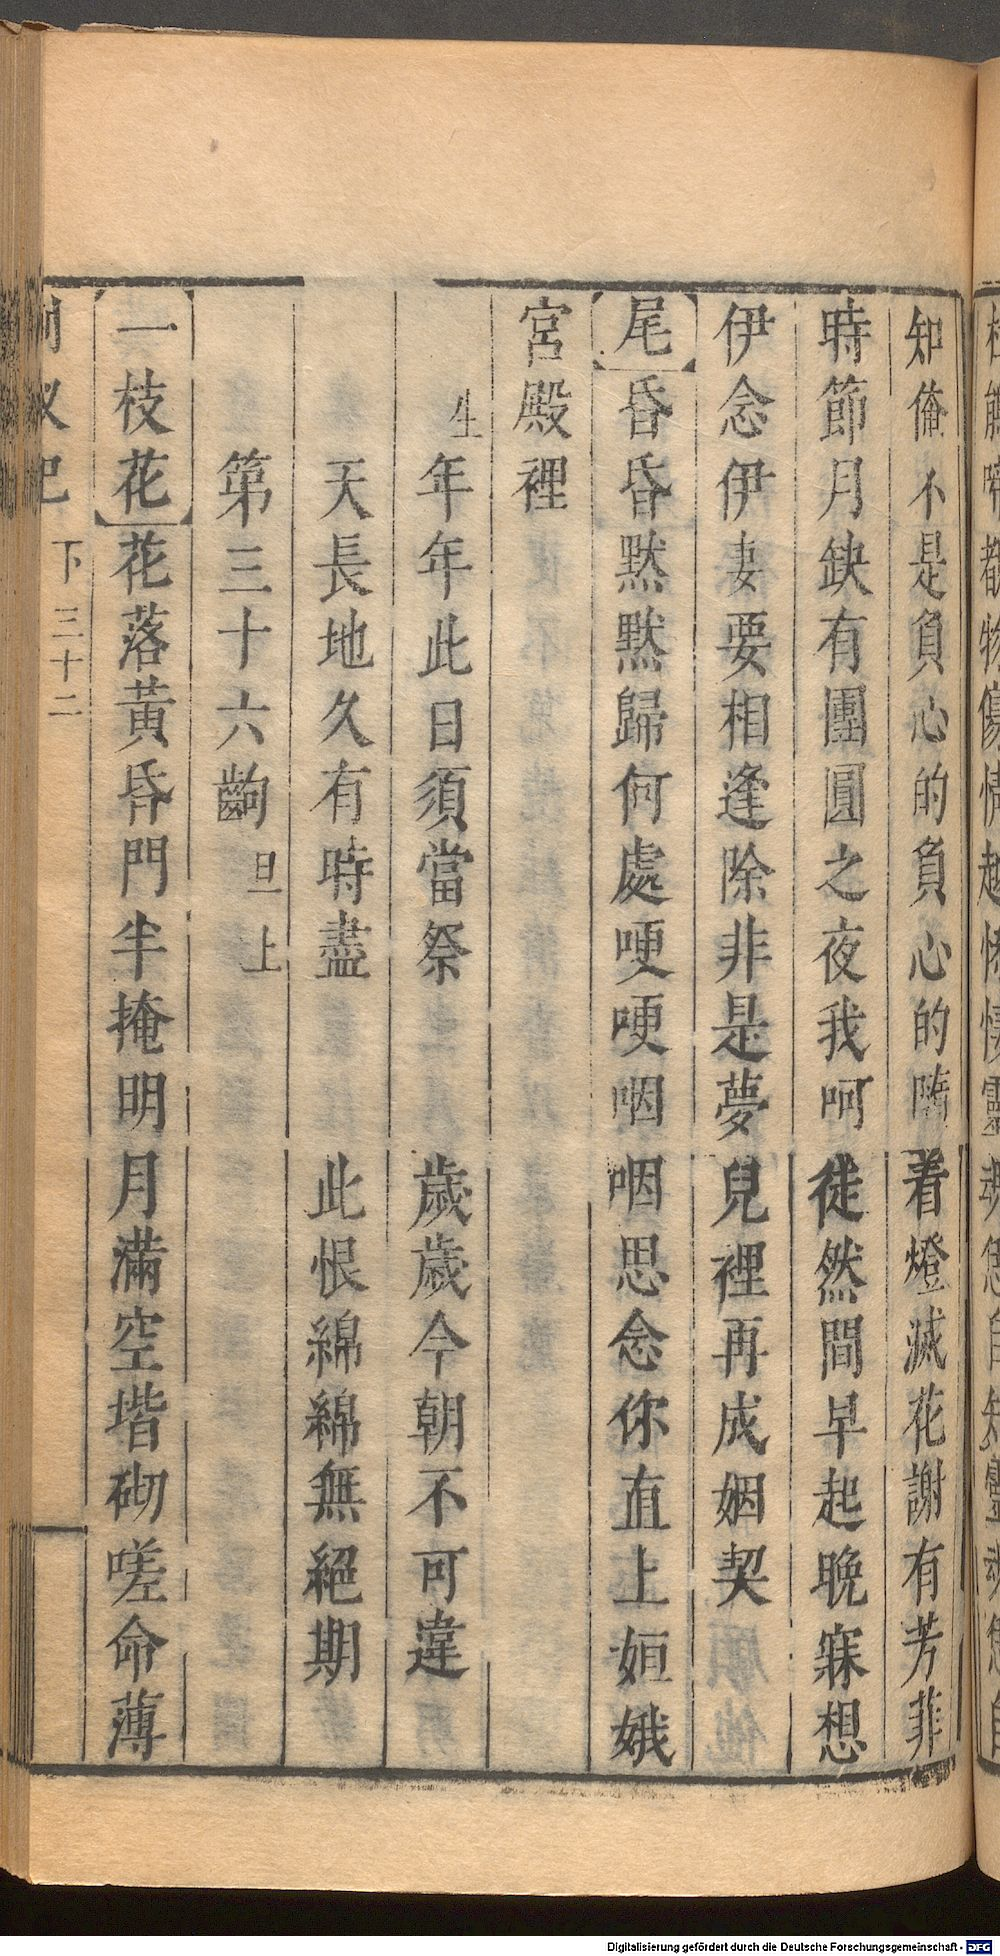 知俺不是負心的負心的隨着燈滅花謝有芳菲
時節月缺有團圓之夜我呵徒然間早起晚寐想
伊念伊妻要相逢除非是夢兒裡再成姻契
尾昏昏默默歸何處哽哽咽咽思念你直上姮娥
宮殿裡
生年年此日須當祭 歲歲今朝不可違
天長地久有時盡 此恨綿綿無絕期
第三十六齣 旦上
一枝花花落黃昏門半掩明月滿空堦砌嗟命薄
下三十二
Digitalisierung gefördert durch die Deutsche Forschungsgemeinschaft - DFG